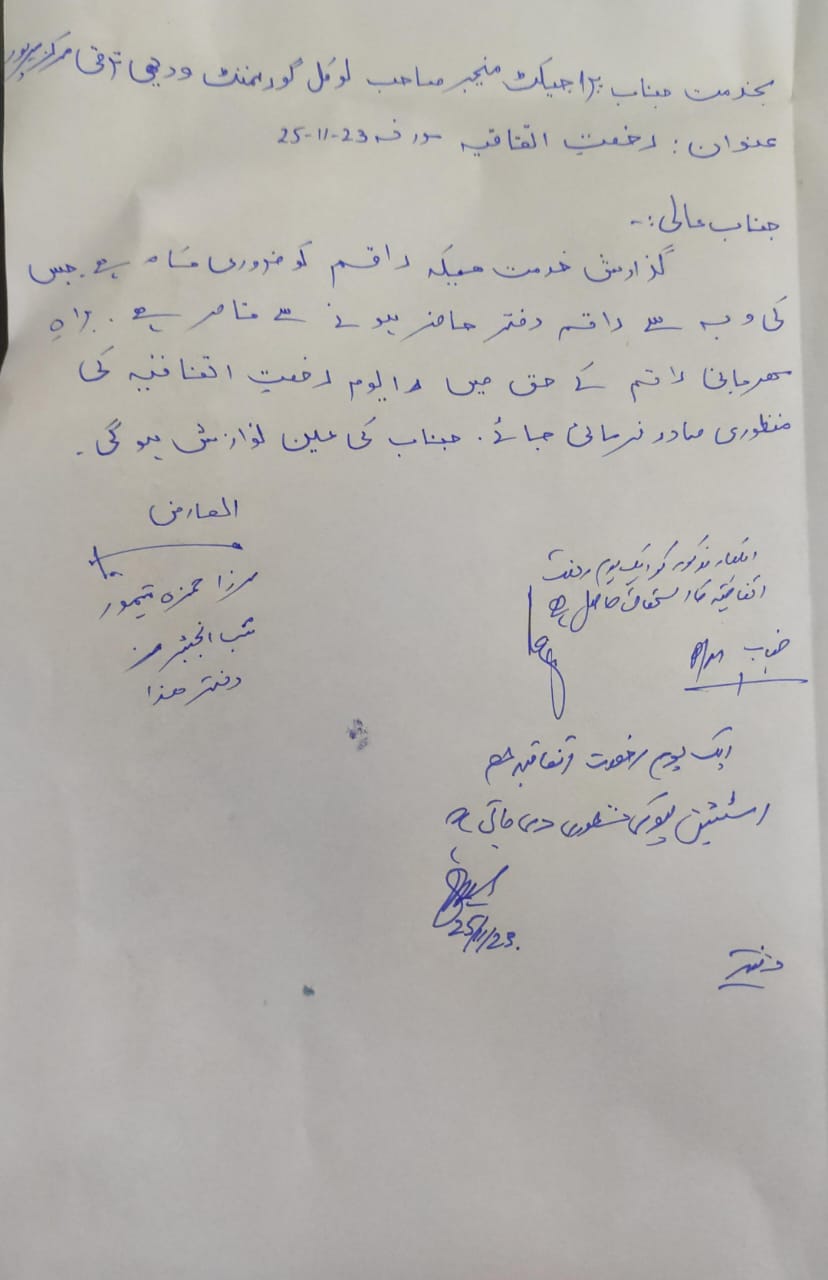 بخدمت جناب پراجیکٹ منیجر صاحب لوکل گورنمنٹ ودیہی ترقی مرکز میرپور
عنوان: رخصت اتفاقیہ مورخہ 23-11-25
جناب عالی:-
گذارش خدمت ھیکہ راقم کو ضروری کام ہے. جس
کی وجہ سے راقم دفتر حاضر ہونے سے قاصر ہے. براہ
مہربانی راقم کے حق میں 1 یوم رخصت اتفاقیہ کی
منظوری صادر فرمائی جائے. جناب کی عین نوازش ہو گی.
العارض
مرزا حمزہ تیمور
سب انجینئر
دفتر ھذا
اہلکار مذکور کو ایک یوم رخصت
اتفاقیہ کا استحقاق حاصل ہے
جناب P/M
ایک یوم رخصت اتفاقیہ
اسٹیشن کی منظوری دی جاتی ہے
25/11/23.
دفتر